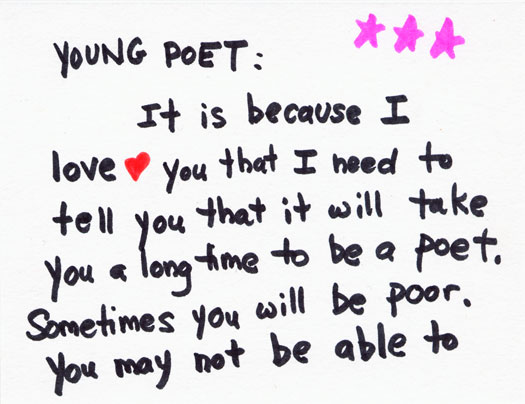 YOUNG POET:
It is because I
love ♥ you that I need to
tell you that it will take
you a long time to be a poet.
Sometimes you will be poor.
You may not be able to